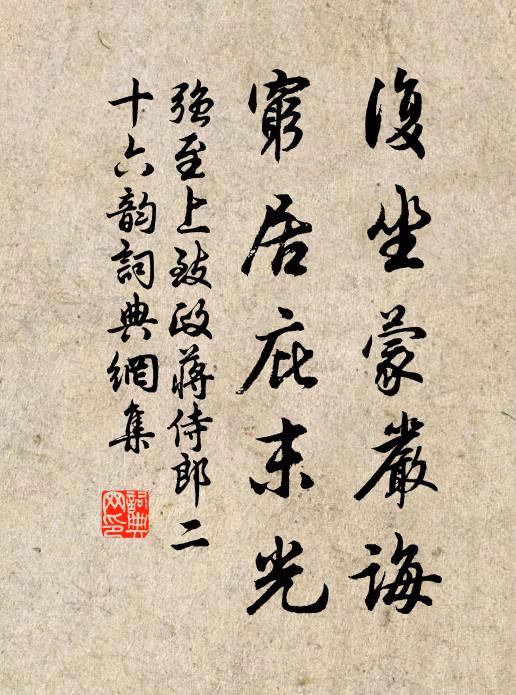 復坐蒙嚴誨
窮居庇末光
強至上致政蔣侍郎二
十六韵詞典網集
詞典网印